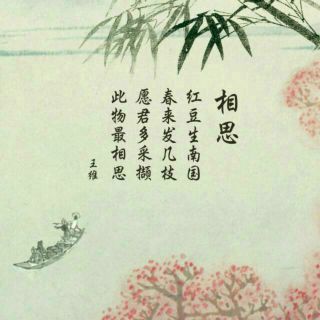 相思
红豆生南国
春来发几枝
愿君多采撷
此物最相思
王维